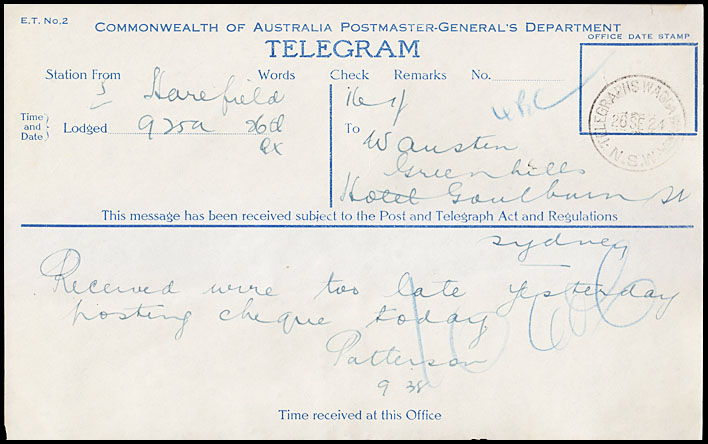 E.T. No. 2
COMMONWEALTH OF AUSTRALIA POSTMASTER-GENERAL'S DEPARTMENT
OFFICE DATE STAMP
TELEGRAM
Station From Words Check Remarks No.
Harefield 16
Time and Date Lodged 925a 26th
To
W Austen
Greenhills
Hotel Goulburn St
TELEGRAPHS WAGGA WAGGA
26 SE 24
N.S.W.
This message has been received subject to the Post and Telegraph Act and Regulations
Sydney
Received wire too late yesterday
posting cheque today
Patterson
9 38
Time received at this Office